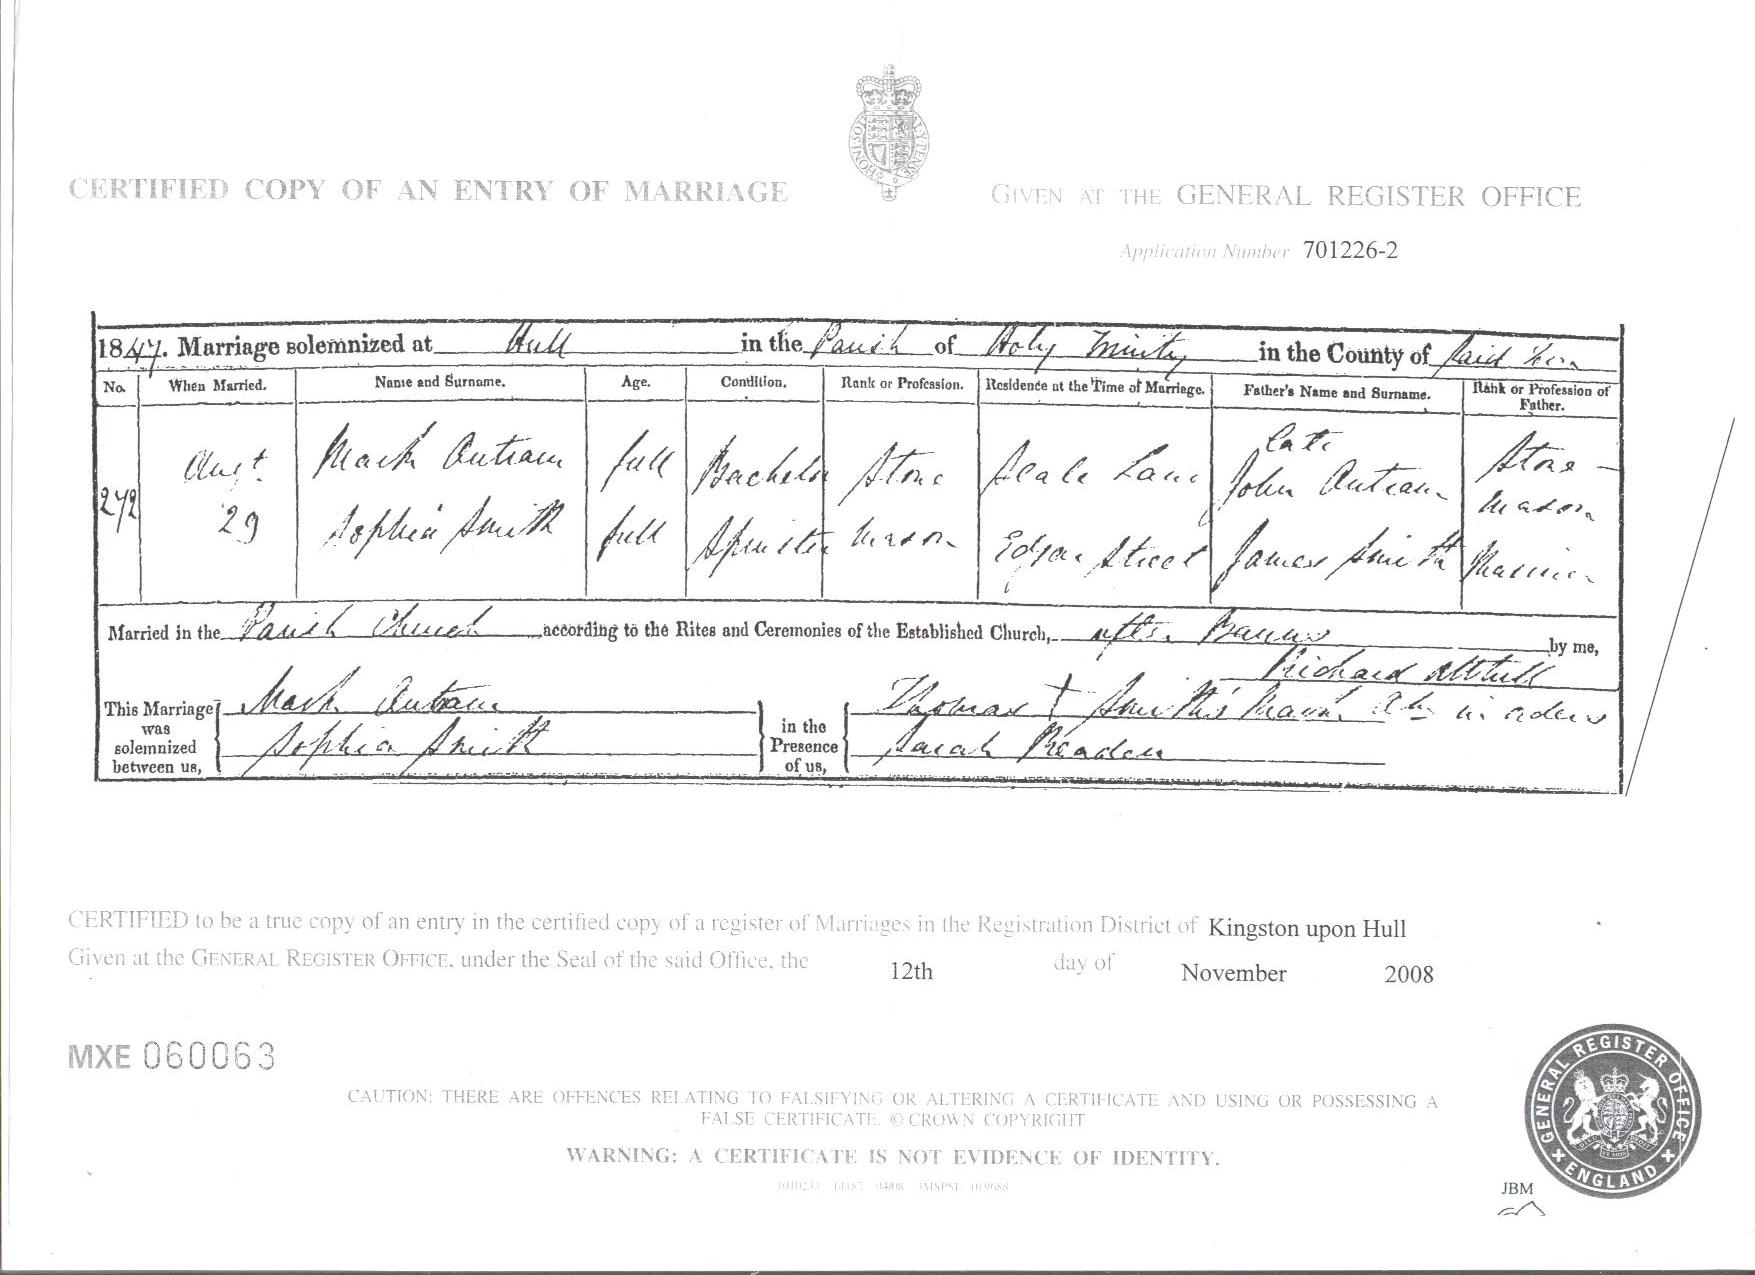 CERTIFIED COPY OF AN ENTRY OF MARRIAGE
GIVEN AT THE GENERAL REGISTER OFFICE
Application Number 701226-2
1847. Marriage solemnized at Hull in the Parish of Holy Trinity in the County of said
No. When Married. Name and Surname. Age. Condition. Rank or Profession. Residence at the Time of Marriage. Father's Name and Surname. Rank or Profession of Father.
272
Augt 29
Mark Outram full Bachelor Stone Mason Scale Lane late John Outram Stone-mason
Sophia Smith full Spinster Edgar Street James Smith Mariner
Married in the Parish Church according to the Rites and Ceremonies of the Established Church, after Banns by me,
Richard
This Marriage was solemnized between us,
Mark Outram
Sophia Smith
in the Presence of us,
Thomas + Smith's Mark
Sarah
CERTIFIED to be a true copy of an entry in the certified copy of a register of Marriages in the Registration District of Kingston upon Hull
Given at the GENERAL REGISTER OFFICE, under the Seal of the said Office, the 12th day of November 2008
MXE 060063
CAUTION: THERE ARE OFFENCES RELATING TO FALSIFYING OR ALTERING A CERTIFICATE AND USING OR POSSESSING A
FALSE CERTIFICATE. © CROWN COPYRIGHT
WARNING: A CERTIFICATE IS NOT EVIDENCE OF IDENTITY.
GENERAL REGISTER OFFICE
ENGLAND
JBM